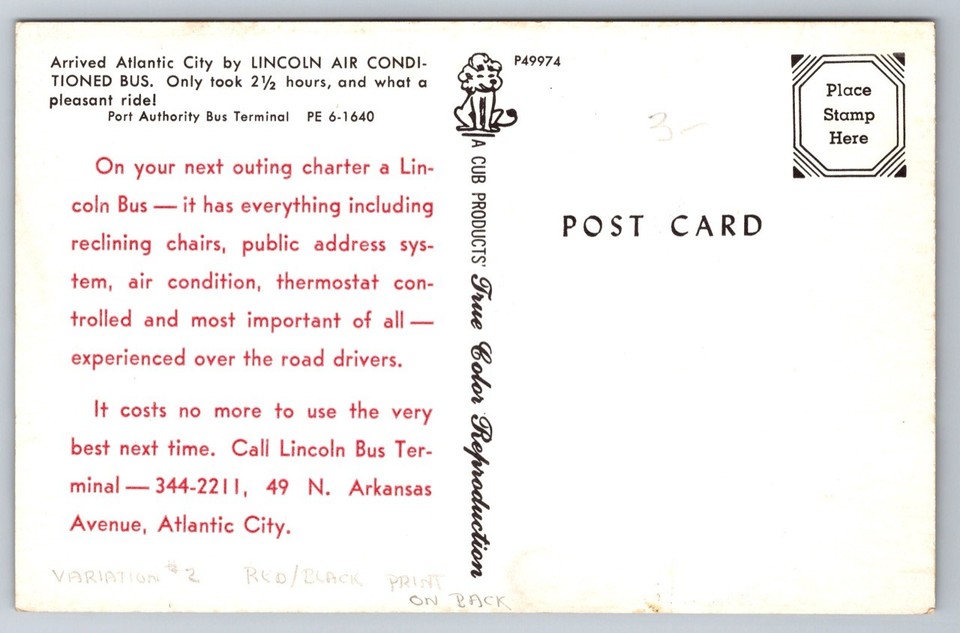 Arrived Atlantic City by LINCOLN AIR CONDI-
TIONED BUS. Only took 2½ hours, and what a
pleasant ride!
Port Authority Bus Terminal PE 6-1640
On your next outing charter a Lin-
coln Bus — it has everything including
reclining chairs, public address sys-
tem, air condition, thermostat con-
trolled and most important of all —
experienced over the road drivers.
It costs no more to use the very
best next time. Call Lincoln Bus Ter-
minal — 344-2211, 49 N. Arkansas
Avenue, Atlantic City.
VARIATION #2 RED/BLACK PRINT
ON BACK
A CUB PRODUCTS' True Color Reproduction
P49974
3-
Place
Stamp
Here
POST CARD